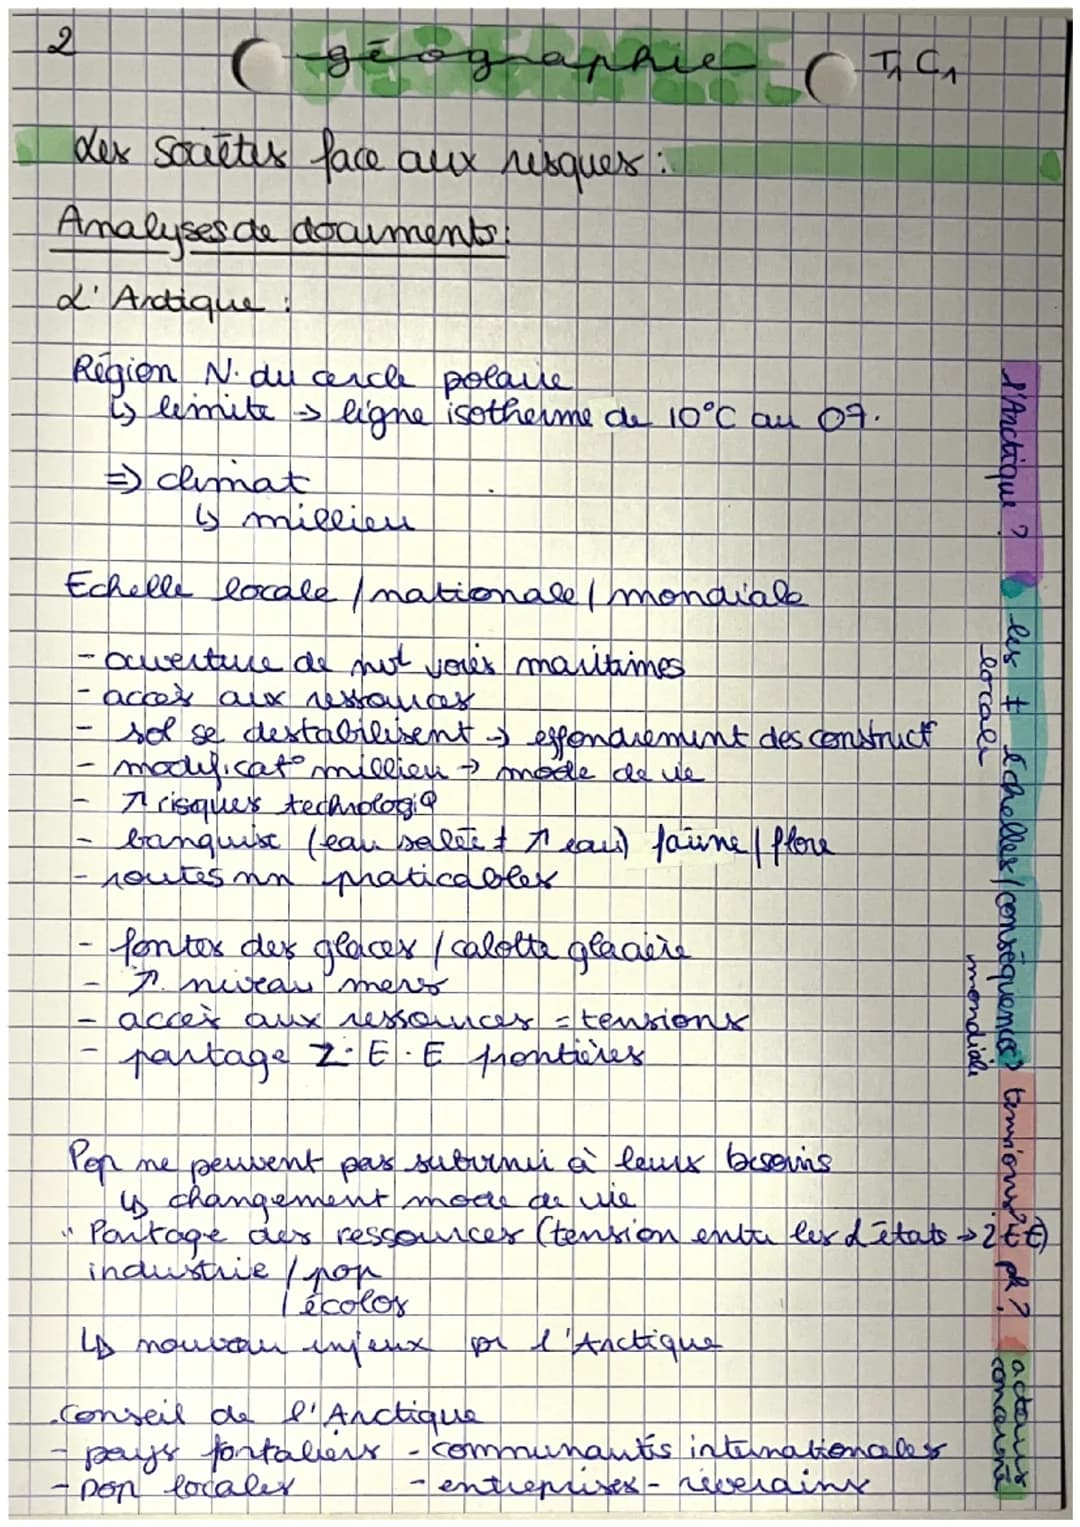 2
géographie T1 C1
Les sociétés face aux risques :
Analyses de documents :
L'Arctique :
Région N. du cercle polaire
↳ limite → ligne isotherme de 10°C au 07.
⇒ climat
↳ millieu
Echelle locale / nationale / mondiale
- ouverture de voies maritimes
- accès aux ressources
- sol se destabilisent → effondrement des construct°
- modificat° millieu → mode de vie
- ↗ risques technologiq
- banquise (eau salée ≠ ↗ eau) faune / flore
- routes nn praticables
- fontes des glaces / calotte glacière
- ↗. niveau mers
- accès aux ressources = tensions
- partage Z.E.E frontières
Pop ne peuvent pas subvenir à leurs besoins
↳ changement mode de vie
" Partage des ressources (tension entre les états →
industrie / pop
/ écolos
↳ nouveau enjeux pr l'Arctique
Conseil de l'Arctique
- pays fontaliers - communautés internationales
- pop locales - entreprises - riverains
l'Arctique ?
les ≠ échelles / conséquences ?
locale
mondiale
tensions ? et pk ?
acteurs
concernés